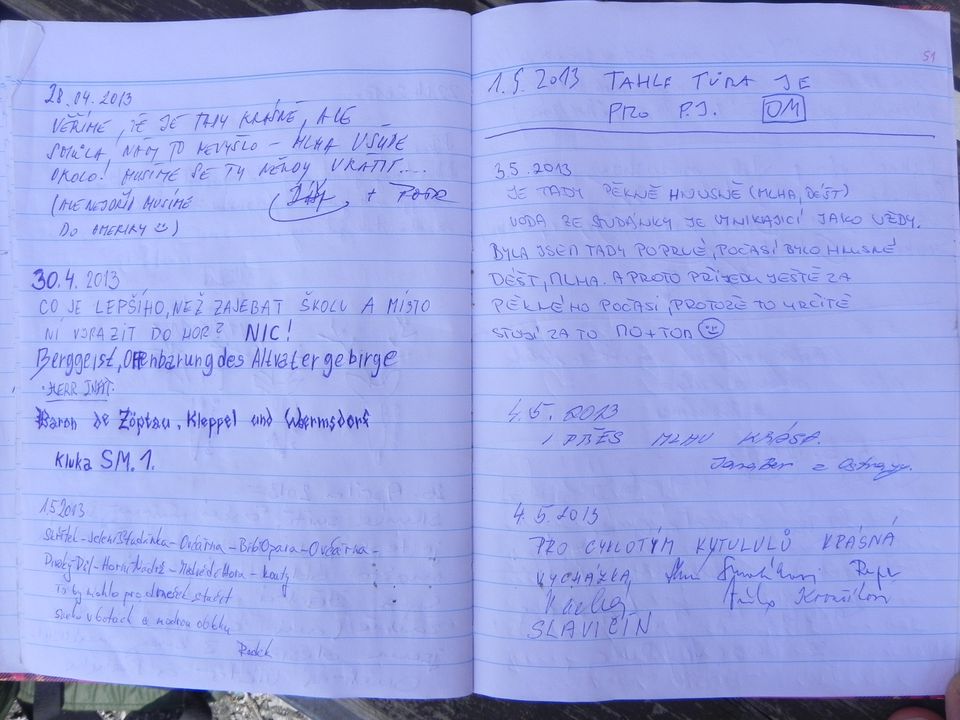 28.04.2013
VĚŘÍME, ŽE JE TADY KRÁSNĚ, ALE
SMŮLA, NÁM TO NEVYŠLO – MLHA VŠUDE
OKOLO! MUSÍME SE TU NĚKDY VRÁTIT....
(ALE NEJDŘÍV MUSÍME
DO AMERIKY ☺)
30.4.2013
CO JE LEPŠÍHO, NEŽ ZAJEBAT ŠKOLU A MÍSTO
NÍ VYRAZIT DO HOR? NIC!
Berggeist, Offenbarung des Altvatergebirge
HERR
Baron de Zöptau, Kleppel und Wermsdorf
Kluka SM.1.
1.5.2013
Skřítek – Jelení Studánka – Ovčárna – – Ovčárna –
Divoký Důl – – – Kouty
To by mohlo pro dnešek stačit
sucho v botách a modrou oblohu
Radek
51
1.5.2013 TAHLE TÚRA JE
PRO P.J. OM
3.5.2013
JE TADY PĚKNĚ HNUSNĚ (MLHA, DÉŠŤ)
VODA ZE STUDÁNKY JE VYNIKAJÍCÍ JAKO VŽDY.
BYLA JSEM TADY POPRVÉ, POČASÍ BYLO HNUSNÉ
DÉŠŤ, MLHA. A PROTO PŘIJEDU JEŠTĚ ZA
PĚKNÉHO POČASÍ, PROTOŽE TO URČITĚ
STOJÍ ZA TO ☺
4.5.2013
I PŘES MLHU KRÁSA.
z Ostravy.
4.5.2013
PRO CYKLOTÝM KYTULULŮ KRÁSNÁ
VYCHÁZKA,
SLAVIČÍN